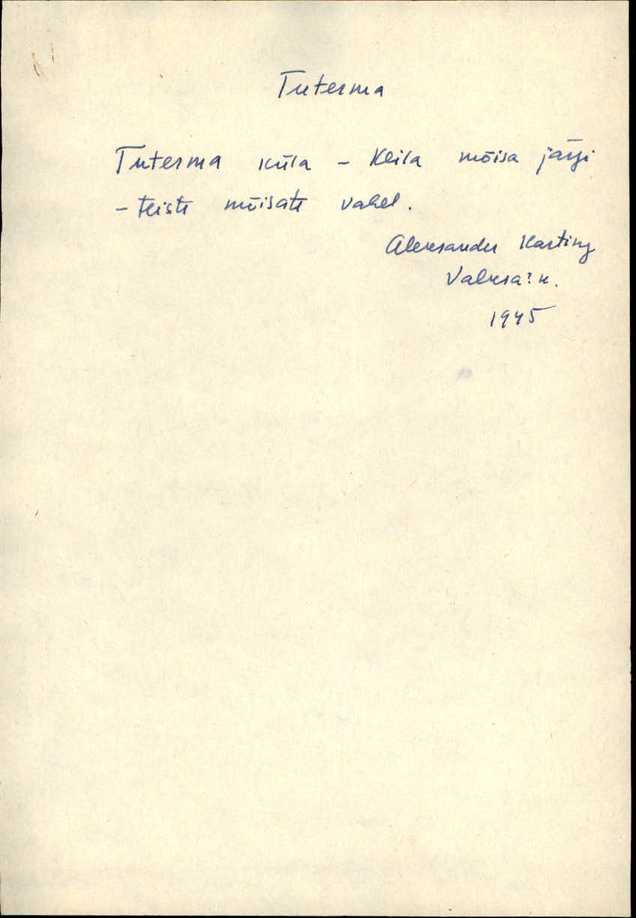 Tuterma
Tuterma küla – Keila mõisa järgi
– teiste mõisate vahel.
Aleksander Karting
1945